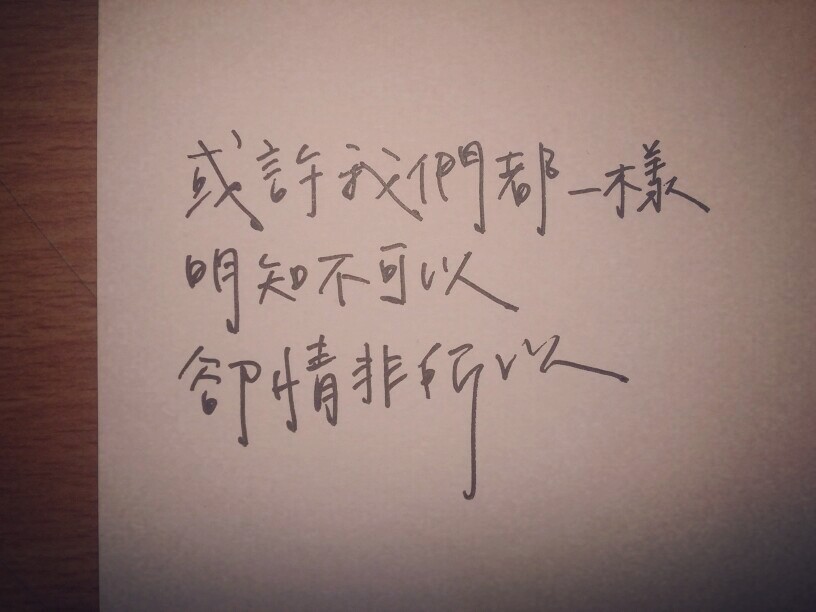 或許我們都一樣
明知不可以
卻情非所以